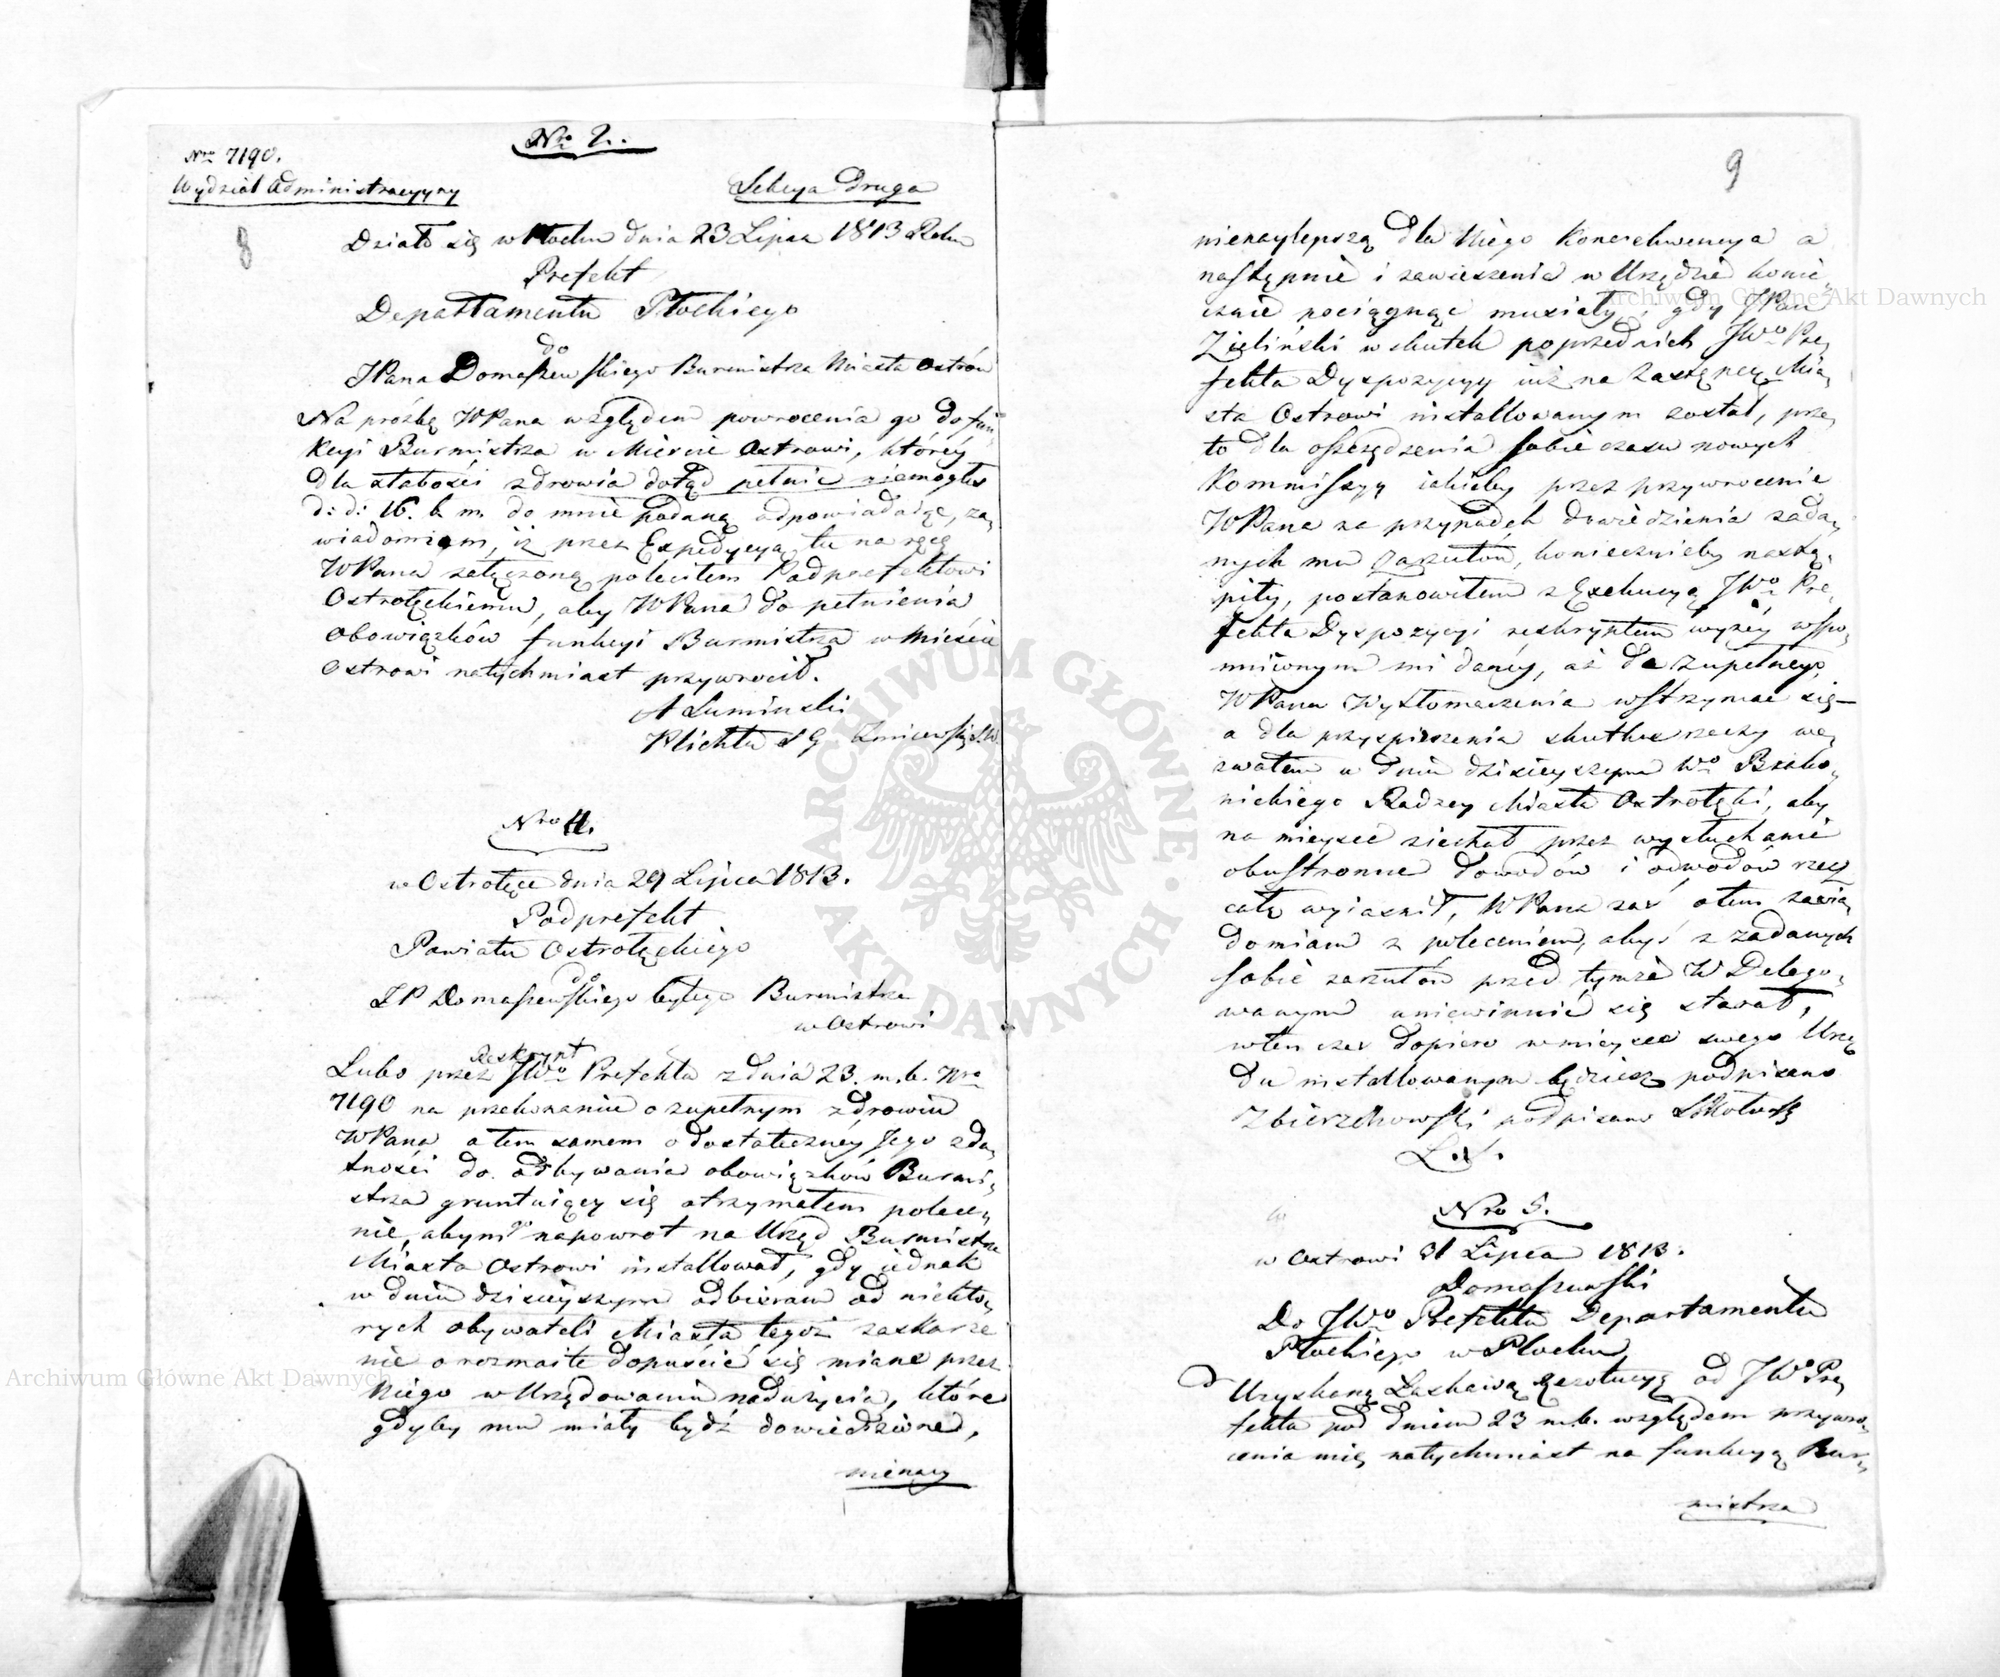 Nro 2.
Nro 7190.
Wydział Administracyyny
Sekcya Druga
8
Działo się w Płocku dnia 23 Lipca 1813 Roku
Prefekt
Departamentu Płockiego
do
JPana Domaszewskiego Burmistrza Miasta Ostrów
Na prośbę WPana względem powrocenia go do fun-
kcyi Burmistrza w Mieście Ostrowi, którey
dla słabości zdrowia dotąd pełnić niemogłeś
d: d: 16. b. m. do mnie podaną odpowiadaiąc, za-
wiadomiam, iż przez Expedycyą tu na ręcę
WPana załączoną poleciłem Podprefektowi
Ostrołęckiemu, aby WPana do pełnienia
obowiązków funkcyi Burmistrza w Mieście
Ostrowi natychmiast przywrocił.
A Lumiński
Plichta S G
Nro 4.
w Ostrołęce dnia 29 Lipca 1813.
Podprefekt
Powiatu Ostrołęckiego
do
JP Domaszewskiego byłego Burmistrza
w Ostrowi
Lubo przez Reskrypt JWo Prefekta z dnia 23. m. b. Nro
7190 na przekonaniu o zupełnym zdrowiu
WPana a tem samem o dostateczney Jego zda-
tności do odbywania obowiązków Burmi-
strza gruntuiący się otrzymałem polece-
nie, abym go napowrot na Urząd Burmistrza
Miasta Ostrowi installował, gdy iednak
w dniu dzisieyszym odbieram od niekto-
rych obywateli Miasta tegoż zaskarze
nie o rozmaite dopuścić się miane przez
Niego w Urzędowaniu nadużycia, które
gdyby mu miały bydź dowiedzione,
nienay
9
nienaylepszą dla Niego konsekwencya a
następnie i zawieszenia w Urzędzie konie-
cznie pociągnąć musiały, gdy JPan
Zieliński w skutek poprzednich JWo Pre-
fekta Dyspozycyy iuż na Zastępcę Mia-
sta Ostrowi installowanym został, prze-
to dla oszczędzenia sobie czasu nowych
Kommissyy iakieby przez przywrocenie
WPana na przypadek dowiedzienia zada-
nych mu zarzutów, koniecznieby nastą-
piły, postanowiłem z Exekucyą JWo Pre-
fekta Dyspozycyi reskryptem wyżey wspo-
mnionym mi daney, aż do zupełnego
WPana Wytłomaczenia wstrzymać się
a dla przyspieszenia skutku rzeczy we-
zwałem w dniu dzisieyszym Wo
nickiego Radzcy Miasta Ostrołęki, aby
na mieysce ziechał przez wysłuchanie
obustronne dowodów i odwodów rzecz
całą wyiaśnił, WPana zaś o tem zawia-
domiam z poleceniem, abyś z zadanych
sobie zarzutów przed tymże W Delego-
wanym uniewinnić się starał,
wtenczas dopiero w mieysce swego Urzę-
du installowanym będziesz podpisano
Zbierzchowski podpisano
L. S.
Nro 5.
w Ostrowi 31 Lipca 1813.
Domaszewski
Do JWo Prefekta Departamentu
Płockiego w Płocku
Uzyskaną Łaskawą rezolucyą od JW Pre-
fekta pod dniem 23 m. b. względem przywro-
cenia mię natychmiast na funkcyą Bur-
mistrza
Archiwum Główne Akt Dawnych
Archiwum Główne Akt Dawnych
ARCHIWUM GŁÓWNE · AKT DAWNYCH ·